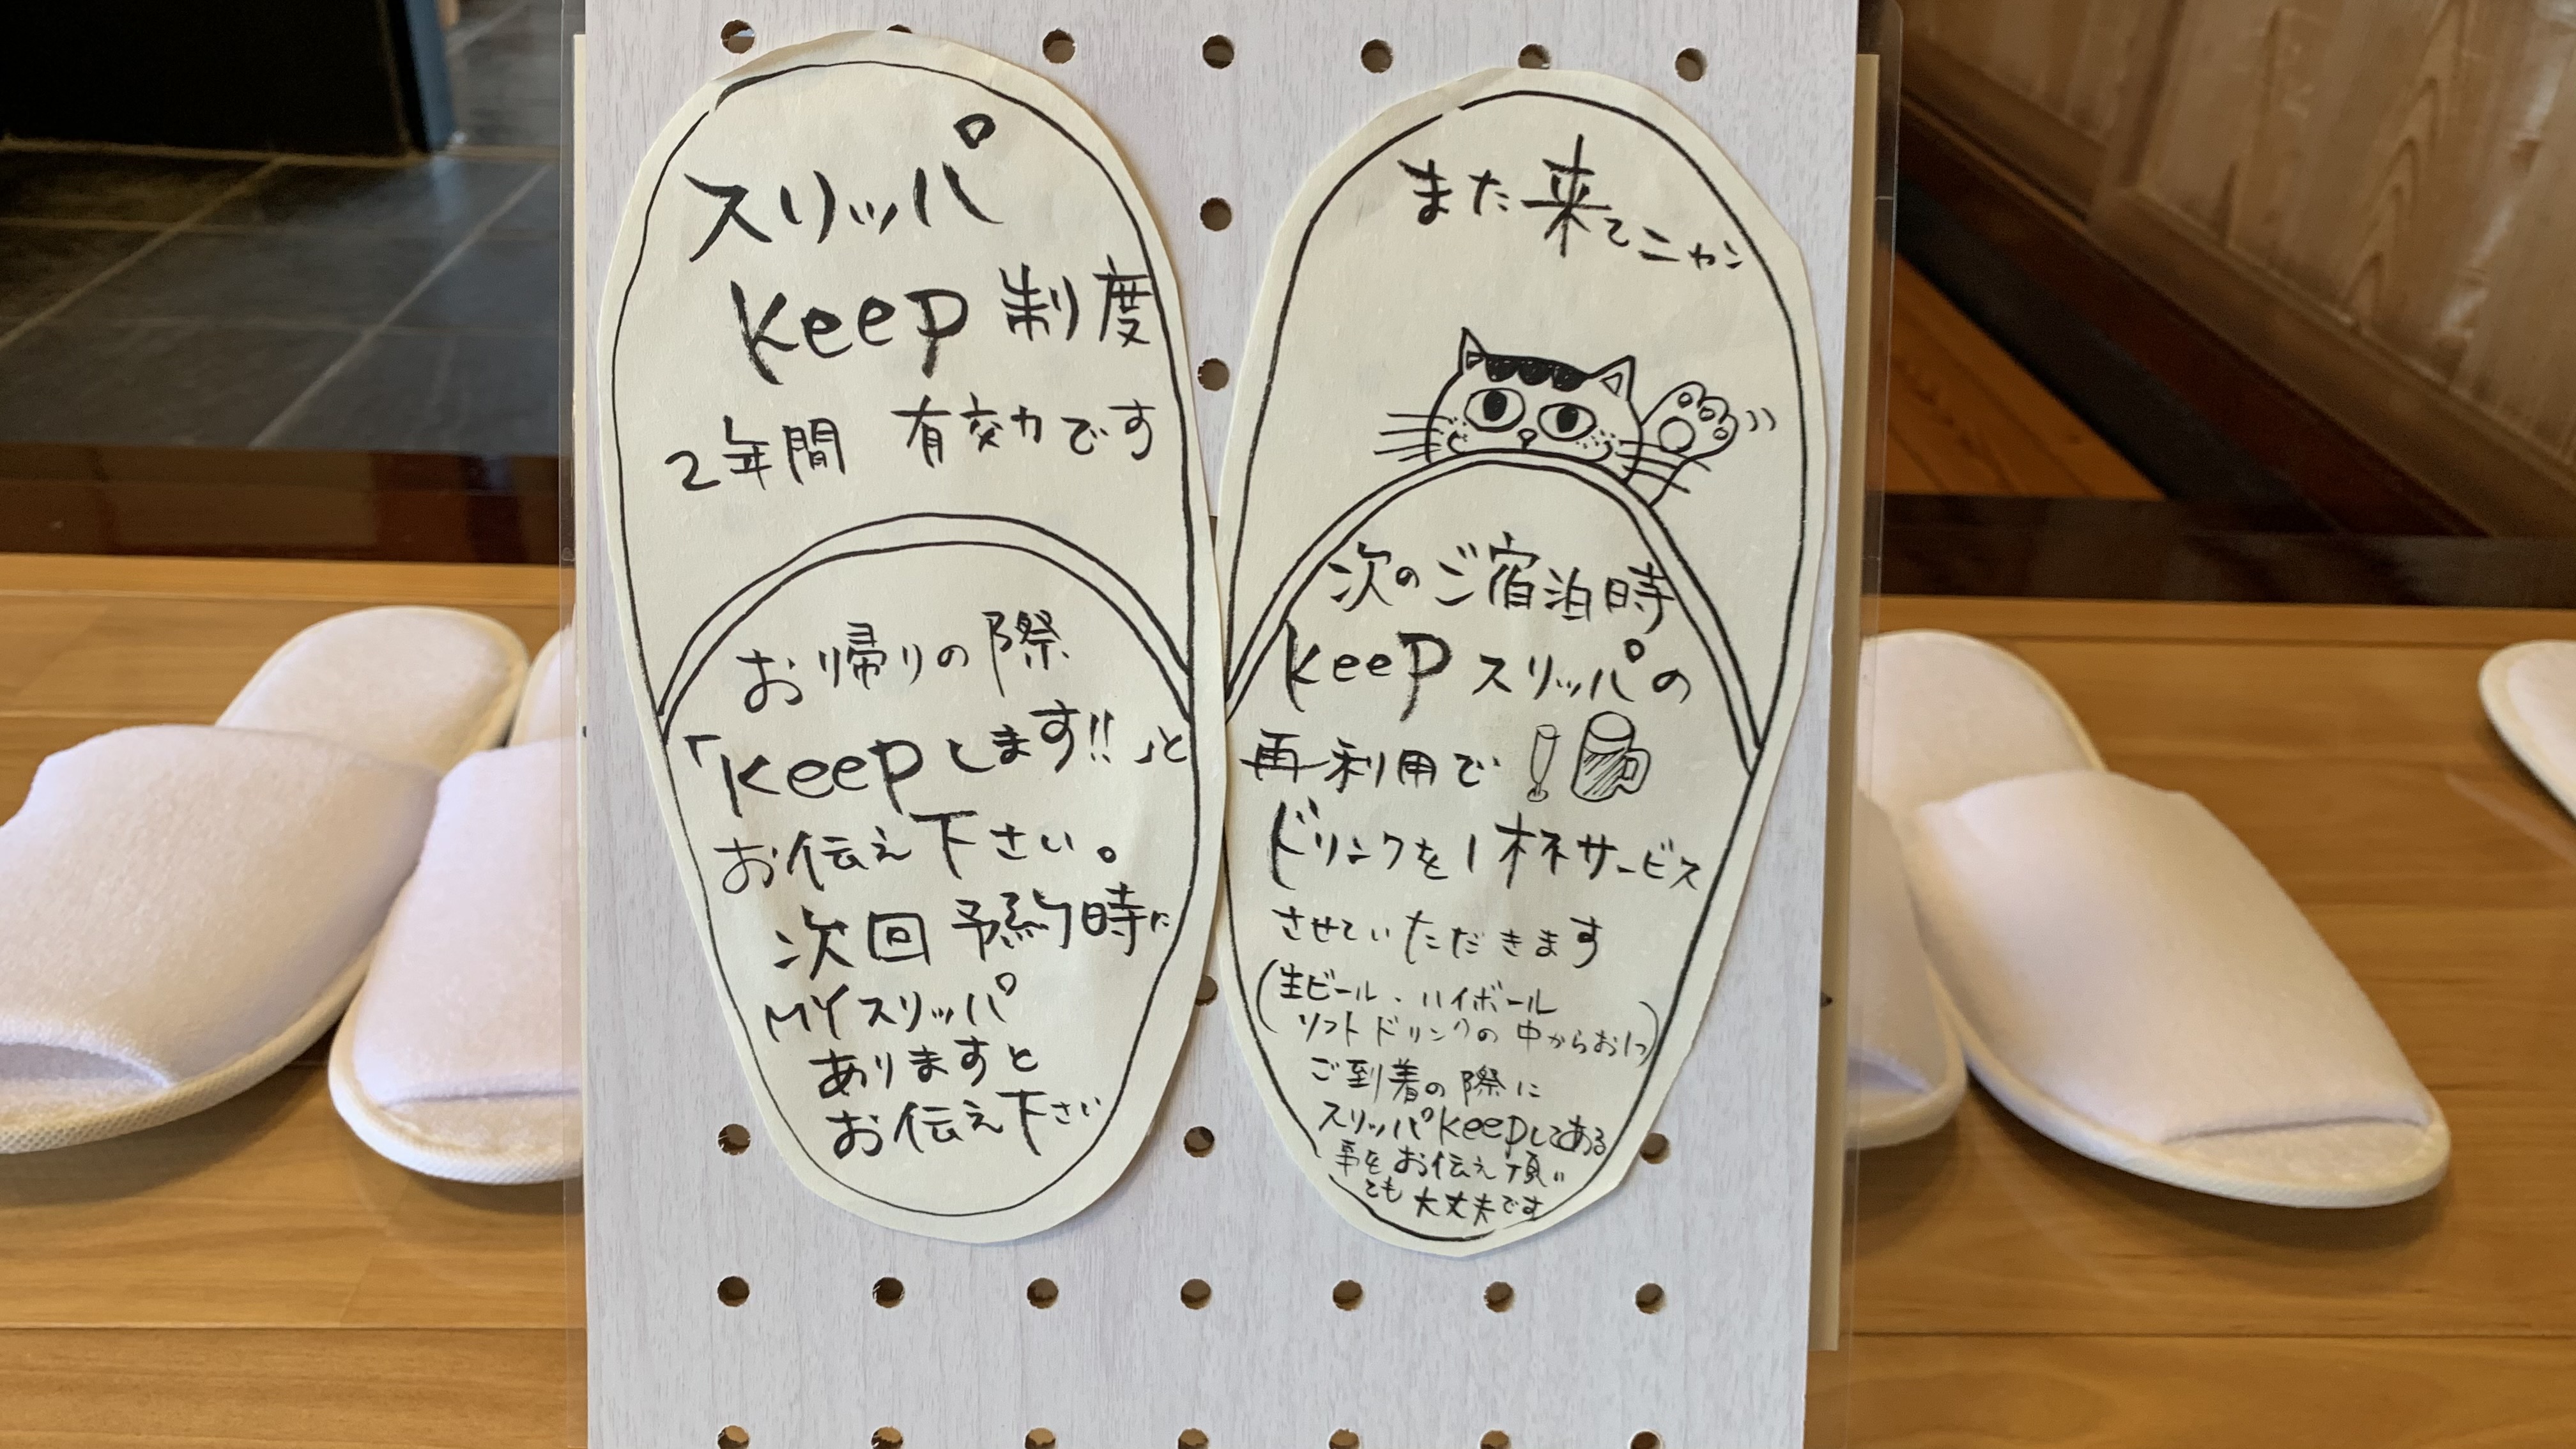 スリッパ
keep制度
2年間 有効です
お帰りの際
「keepします!!」と
お伝え下さい。
次回予約時に
MYスリッパ
ありますと
お伝え下さい
また来てニャン
次のご宿泊時
keepスリッパの
再利用で
ドリンクを1杯サービス
させていただきます
(生ビール、ハイボール
ソフトドリンクの中からお1つ)
ご到着の際に
スリッパkeepしてある
事をお伝え頂い
ても大丈夫です